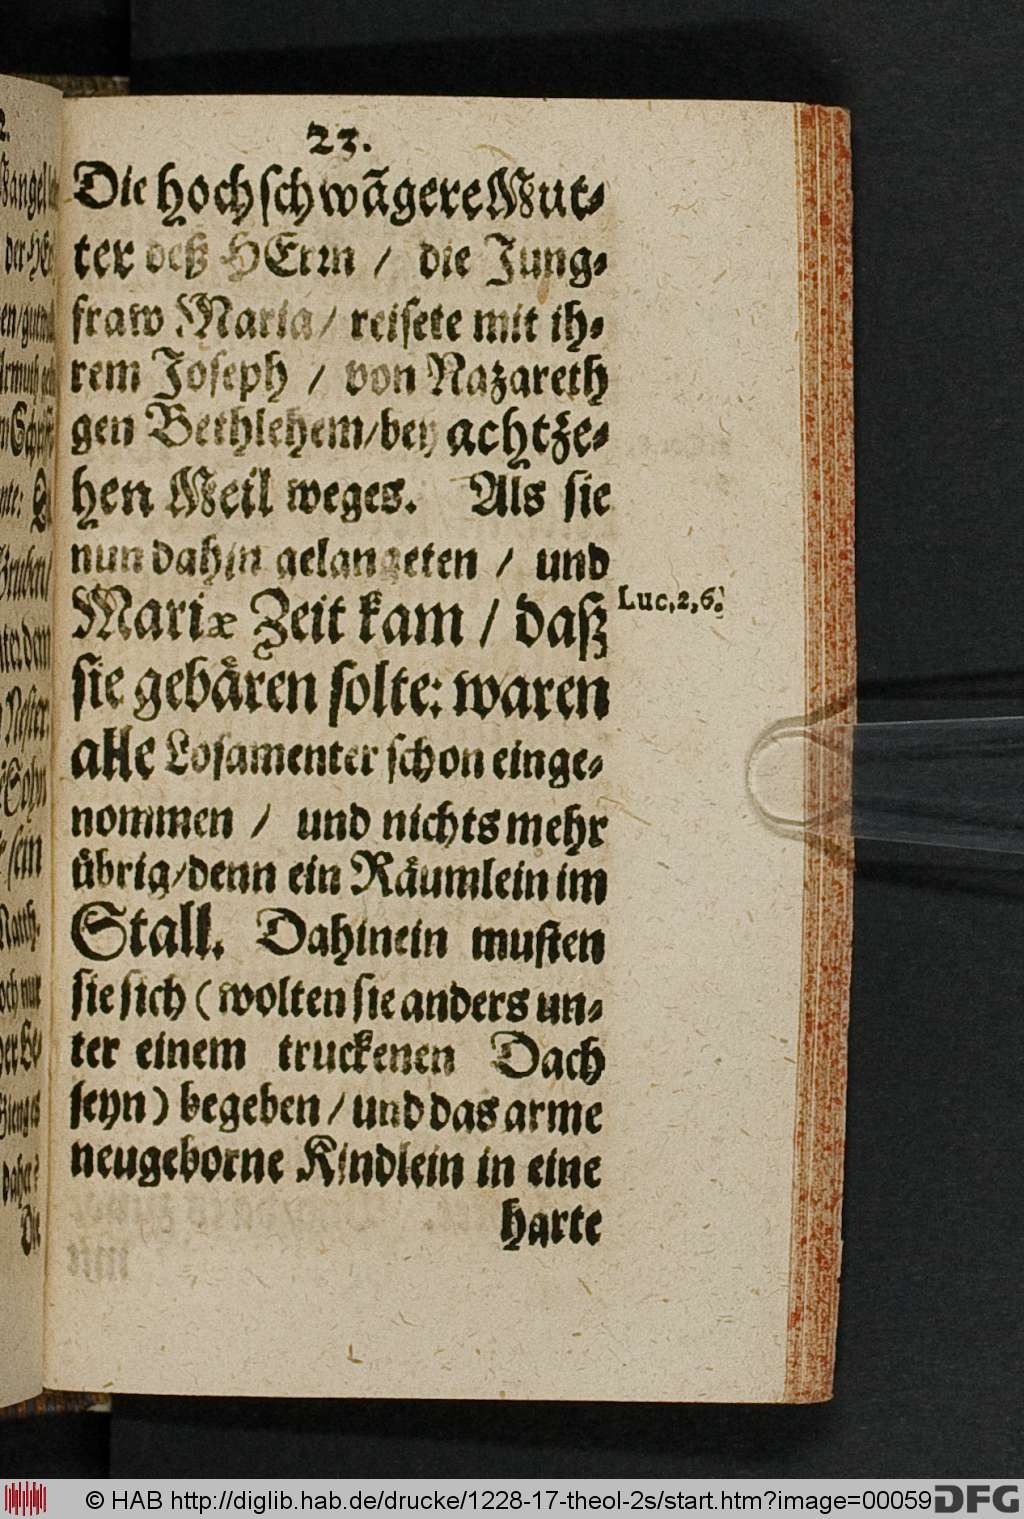 23.
Die hochschwãgere Mut-
ter deß HErrn / die Jung-
fraw Maria / reisete mit ih-
rem Joseph / von Nazareth
gen Bethlehem / bey achtze-
hen Meil weges. Als sie
nun dahin gelangeten / und
Mariæ Zeit kam / daß
Luc, 2, 6.
sie gebären solte: waren
alle Losamenter schon einge-
nommen / und nichts mehr
übrig / denn ein Räumlein im
Stall. Dahinein musten
sie sich (wolten sie anders un-
ter einem truckenen Dach
seyn) begeben / und das arme
neugeborne Kindlein in eine
harte
© HAB http://diglib.hab.de/drucke/1228-17-theol-2s/start.htm?image=00059
DFG